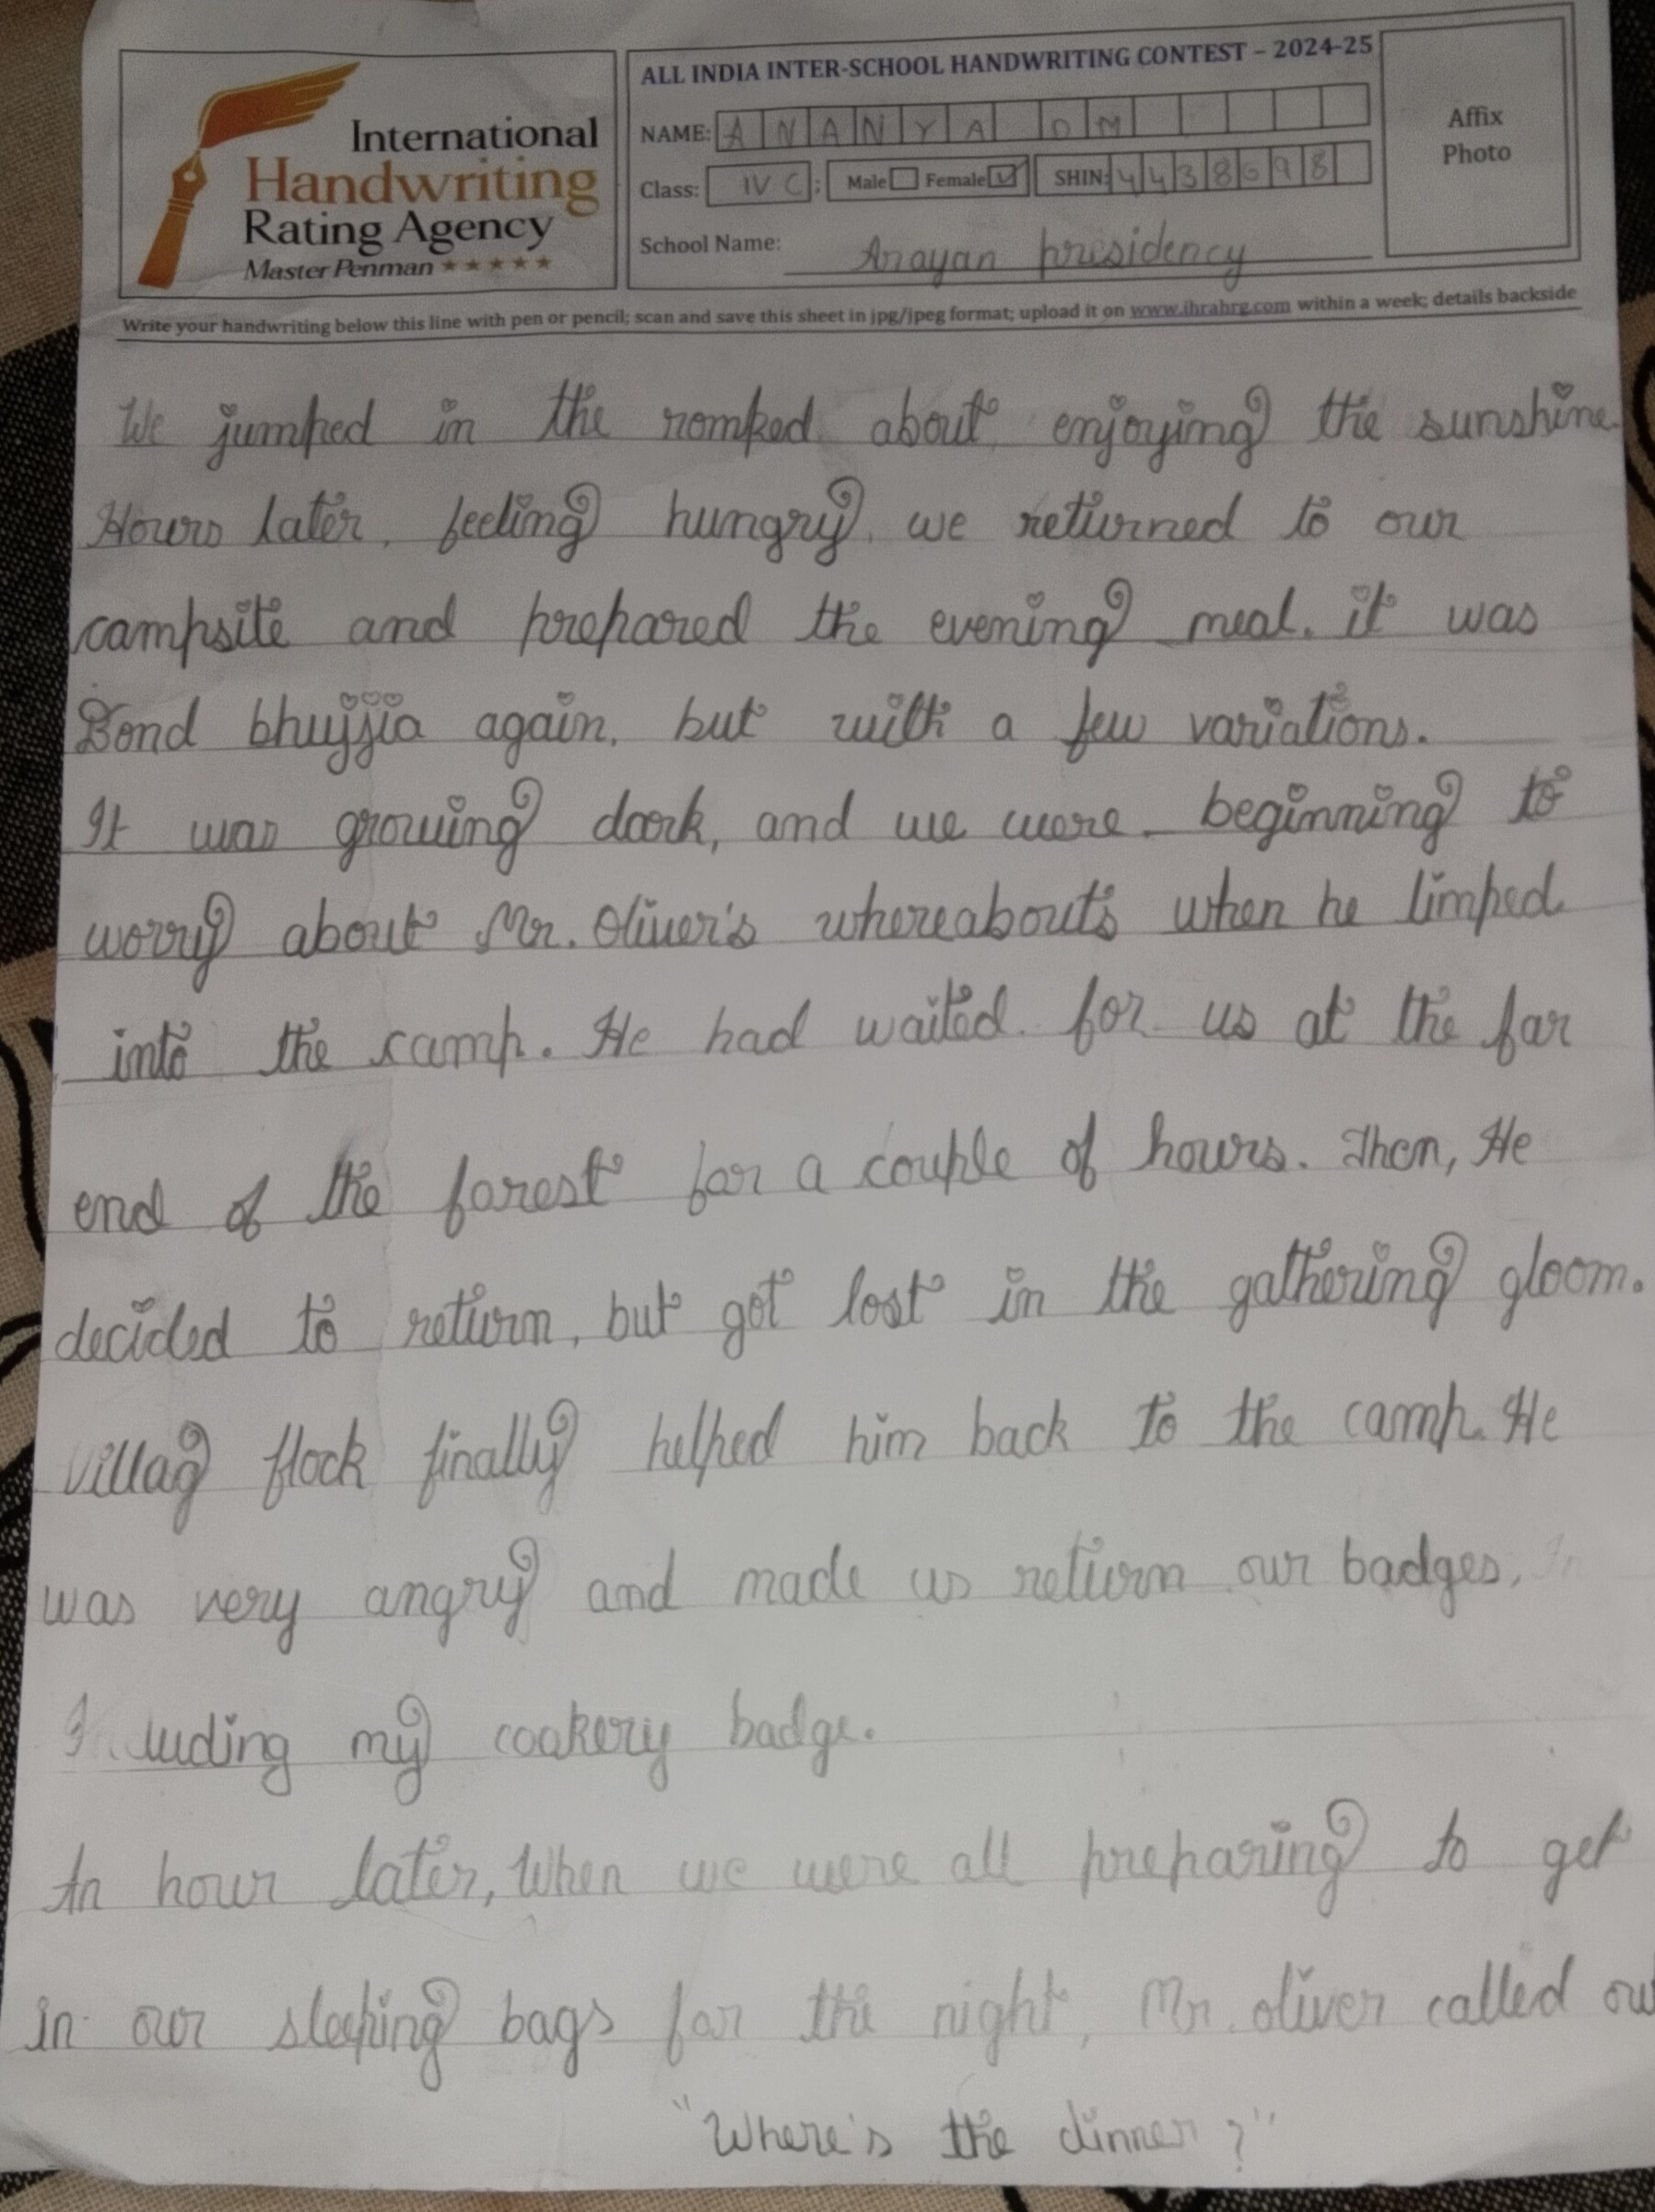 International
Handwriting
Rating Agency
Master Penman ★★★★★
ALL INDIA INTER-SCHOOL HANDWRITING CONTEST – 2024-25
NAME: ANANYA OM
Class: IV C; Male Female ✓ SHIN: 4438698
School Name: Arayan presidency
Affix
Photo
Write your handwriting below this line with pen or pencil; scan and save this sheet in jpg/jpeg format; upload it on www.ihrahrg.com within a week; details backside
We jumped in the romped about enjoying the sunshine.
Hours later, feeling hungry, we returned to our
campsite and prepared the evening meal. it was
Bond bhujjia again, but with a few variations.
It was growing dark, and we were beginning to
worry about Mr. Oliver's whereabouts when he limped
into the camp. He had waited for us at the far
end of the forest for a couple of hours. Then, He
decided to return, but got lost in the gathering gloom.
villag flock finally helped him back to the camp. He
was very angry and made us return our badges, In
Including my coakery badge.
An hour later, When we were all preparing to get
in our sleeping bags for the night, Mr. oliver called ou
"Where's the dinner ?"